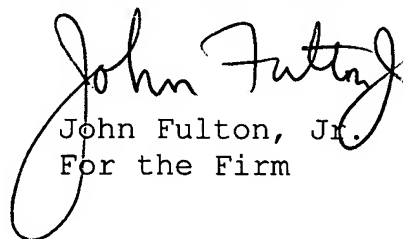 John Fulton Jr.
John Fulton, Jr.
For the Firm